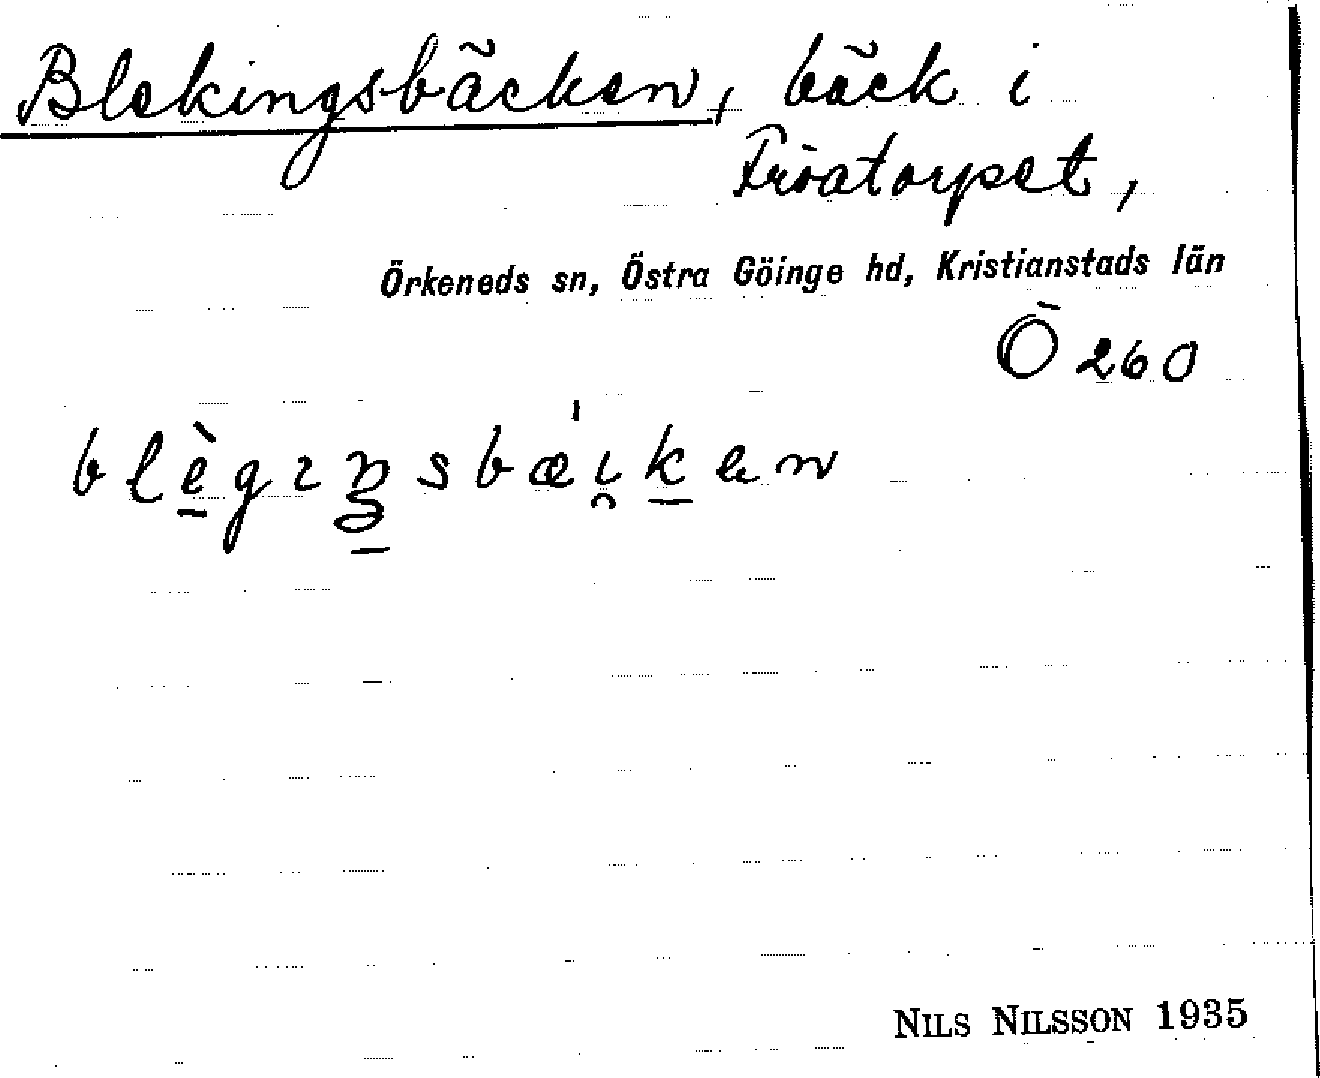 Blekingsbäcken, bäck i
Örkeneds sn, Östra Göinge hd, Kristianstads län
Ö 260
NILS NILSSON 1935